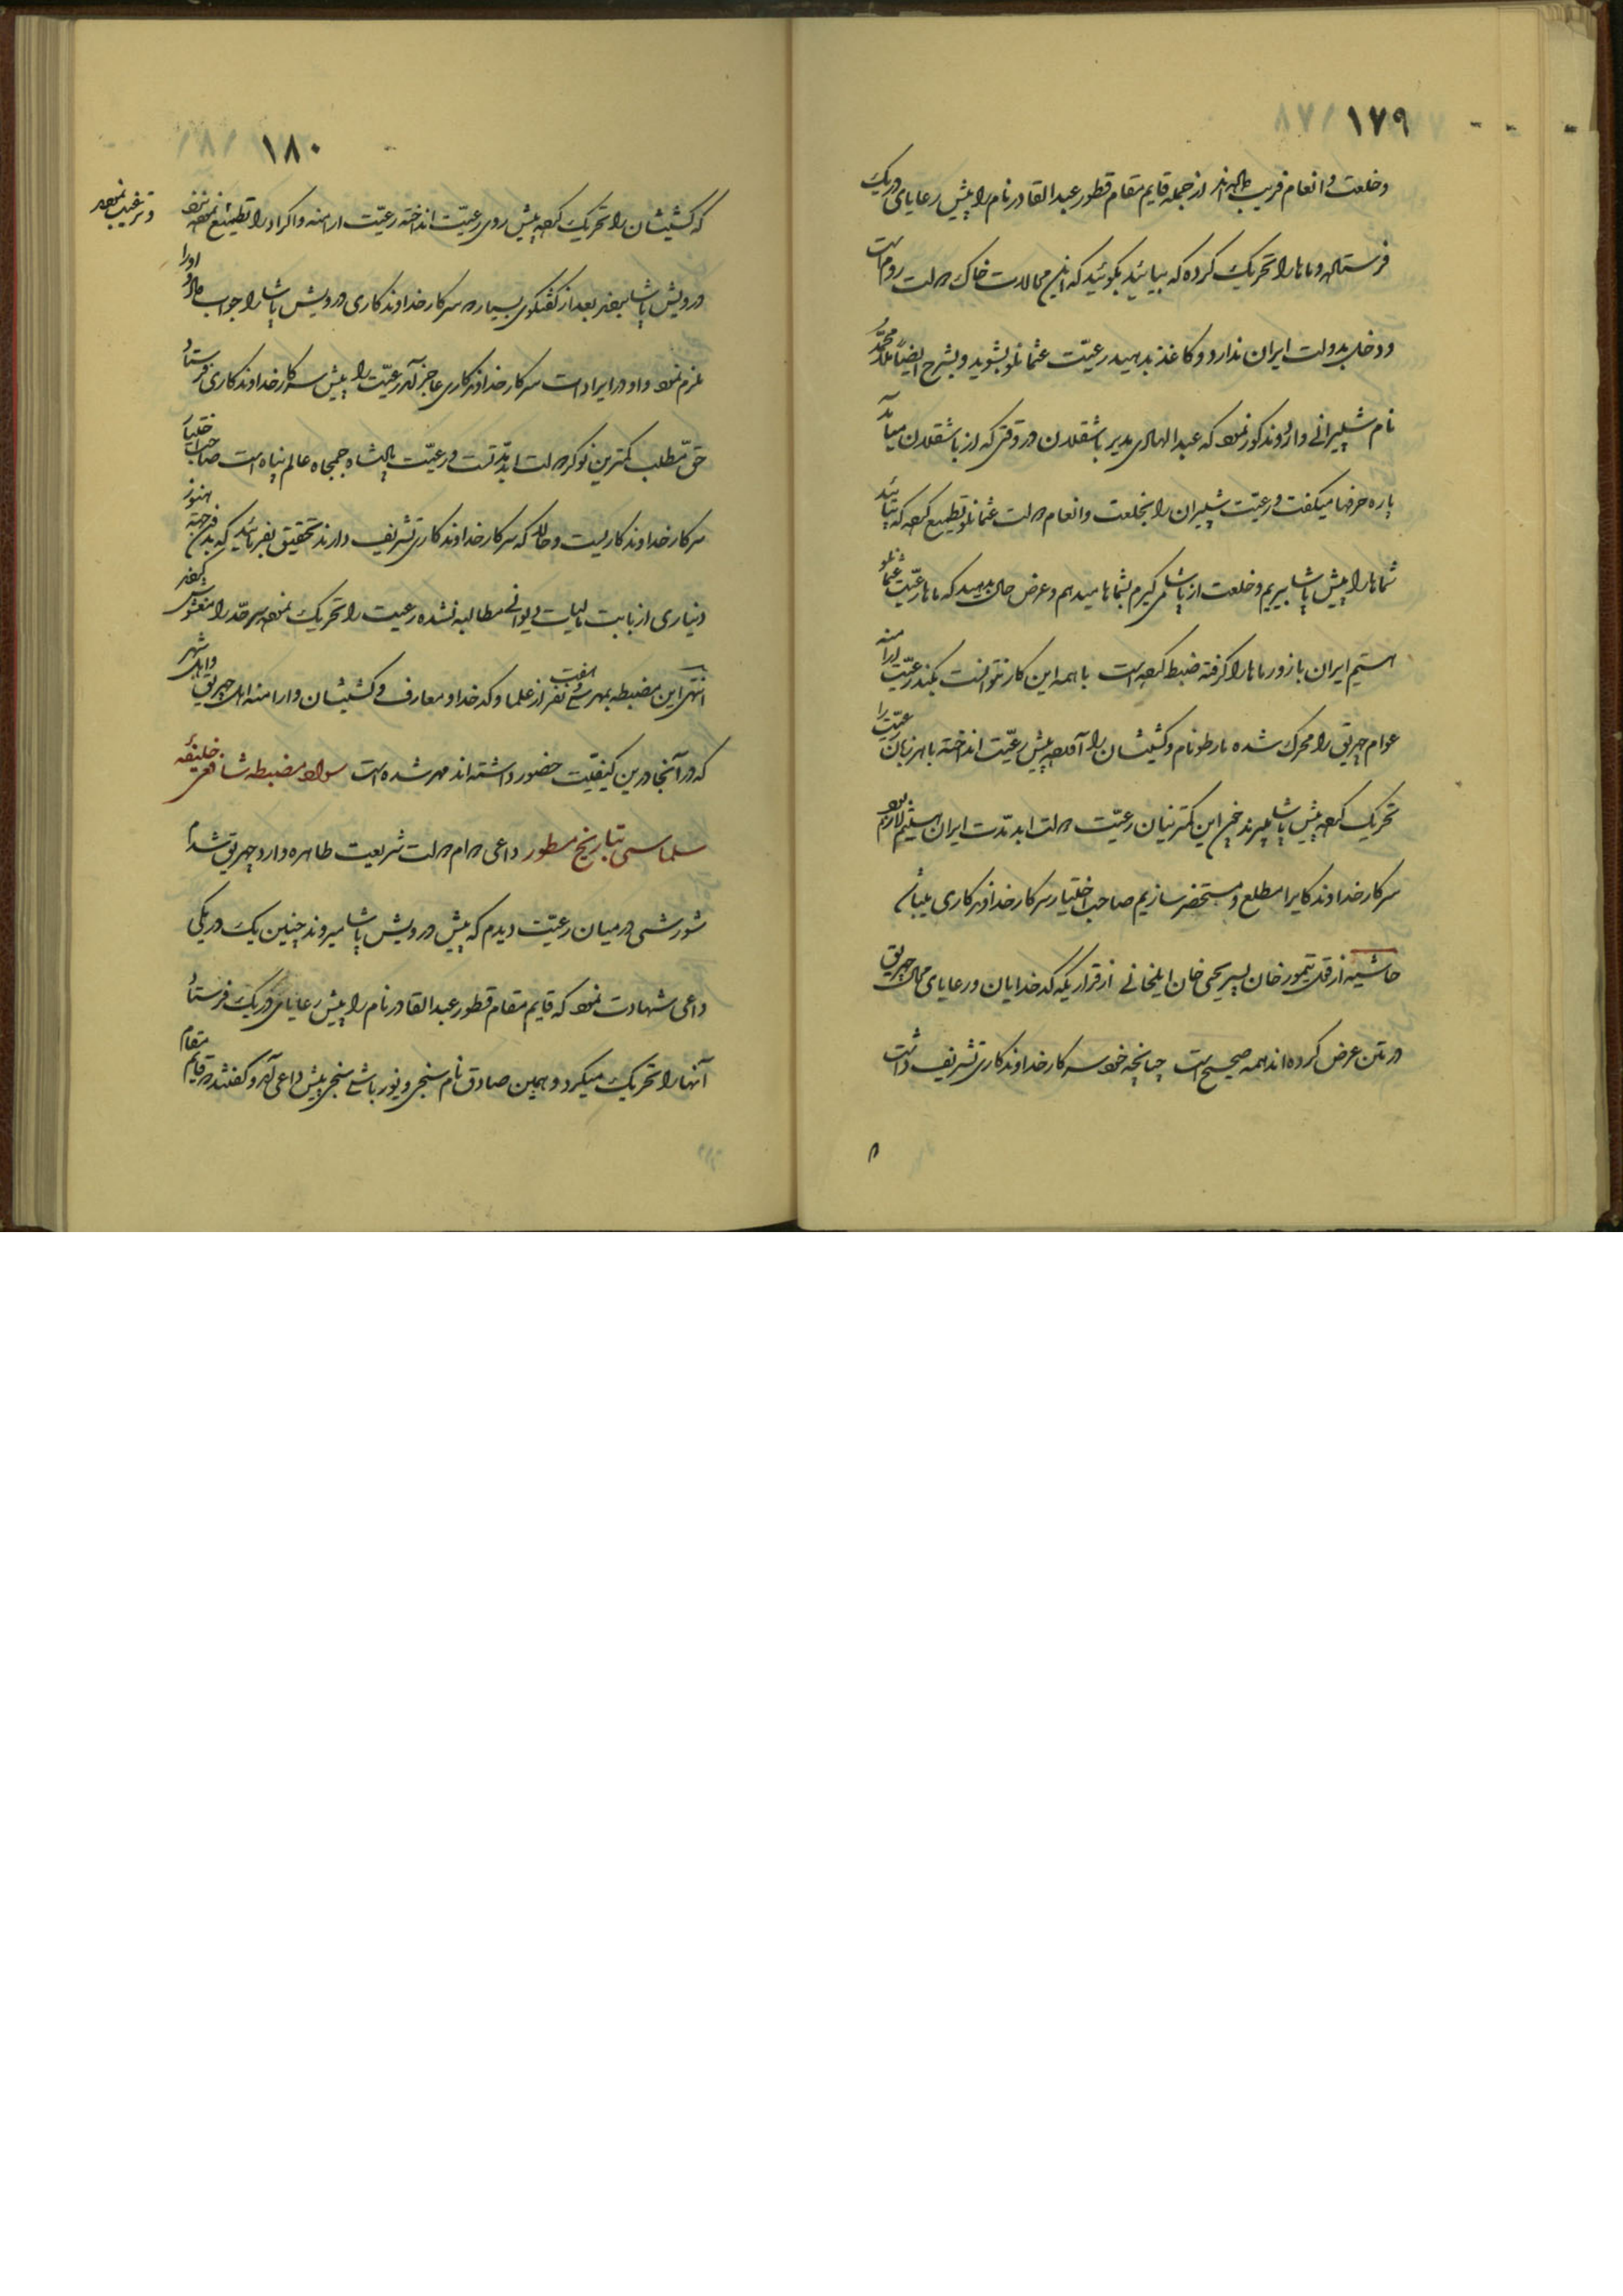 ۱۷۹
وخلعت وانعام فریب داده‌اند از جمله قایم مقام قطور عبدالقادر نام را پیش رعایای دریک
فرستاده و ماها را تحریک کرده که بیائید بگوئید که این محالات خاک دولت روم است
ودخلی بدولت ایران ندارد وکاغذ بدهید رعیّت عثمانلو بشوید وبشرح ایضاً ملا محمّد
نام شپیرانی وارد ومذکور نمود که عبدالهادی مدیر باشقلان در وقتی که از باشقلان میآمد
پاره حرفها میگفت ورعیّت شپیران را بخلعت وانعام دولت عثمانلو تطمیع کرده که بیائید
شماها را پیش پاشا ببریم وخلعت از پاشا می‌گیرم بشماها میدهم وعرض حال بدهید که ماها رعیّت عثمانلو
هستیم ایران با زور ماها را گرفته ضبط کرده است با همه این کار نتوانست بکند رعیّت ارامنه
عوام چهریق را محرک شده مارطو نام وکشیشان را آورده پیش رعیّت انداخته با هر زبان رعیّت را
تحریک کرده پیش پاشا میبرند چون این کمترینان رعیّت دولت ابدمدّت ایران هستیم لازم بود
سرکار خداوندکاریرا مطلع ومستحضر سازیم صاحب اختیار سرکار خداوندکاری میباشند
حاشیه از قول تیمور خان پسر یحیی خان ایلخانی از قراریکه کدخدایان ورعایای محال چهریق
در متن عرض کرده‌اند همه صحیح است چنانچه خود سرکار خداوندکاری تشریف داشت
۱۸۰
که کشیشان را تحریک کرده پیش روی رعیّت انداخته رعیّت ارامنه واکراد را تطمیع نموده نزد
وترغیب نموده
درویش پاشا میبرند بعد از گفتگوی بسیار سرکار خداوندکاری درویش پاشا را جواب داد و او را
ملزم نمود واو در ایرادات سرکار خداوندکاری عاجز آمد رعیّت را پیش سرکار خداوندکاری فرستاد
حق مطلب کمترین نوکر دولت ابدمدّت ورعیّت پادشاه جمجاه عالم پناه است صاحب اختیار
سرکار خداوندکاریست وحال که سرکار خداوندکاری تشریف دارند تحقیق بفرمائید که بدین جهة هنوز
دیناری از بابت مالیات دیوانی مطالبه نشده رعیت را تحریک نموده سرحدّ را مغشوش کردند
انتهی این مضبطه بمهر سی وهفت نفر از علما وکدخدا ومعارف وکشیشان وارامنه اهل چهریق واهل شهر
که در آنجا درین کیفیّت حضور داشته‌اند مهر شده است سواد مضبطه شافعی خلیفهٔ
سلماسی بتاریخ مسطور داعی دوام دولت شریعت طاهره وارد چهریق شدم
شورشی در میان رعیّت دیدم که پیش درویش پاشا میروند چنین یک دریکی
داعی شهادت نمود که قایم مقام قطور عبدالقادر نام را پیش رعایای دریک فرستاد
آنها را تحریک میکرد وهمین صادق نام سنجی ونور باشی سنجی پیش داعی آمد وگفتند قایم مقام